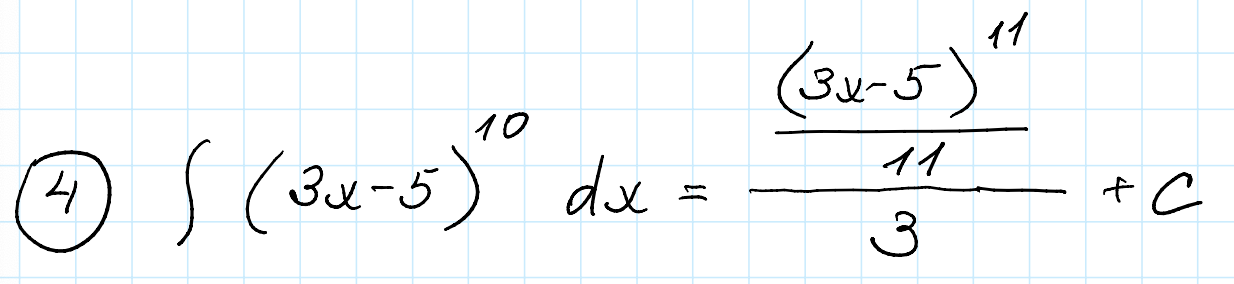 ④ ∫ (3x-5)^10 dx = (((3x-5)^11)/11)/3 + C